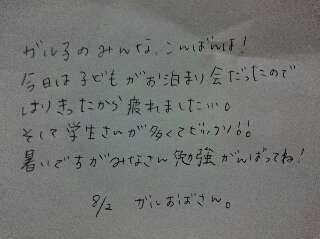 ガル子のみんな、こんばんは!
今日は子どもがお泊まり会だったので
はりきったから疲れました…。
そして学生さんが多くてビックリ!!
暑いですがみなさん勉強がんばってね!
8/2 ガルおばさん。